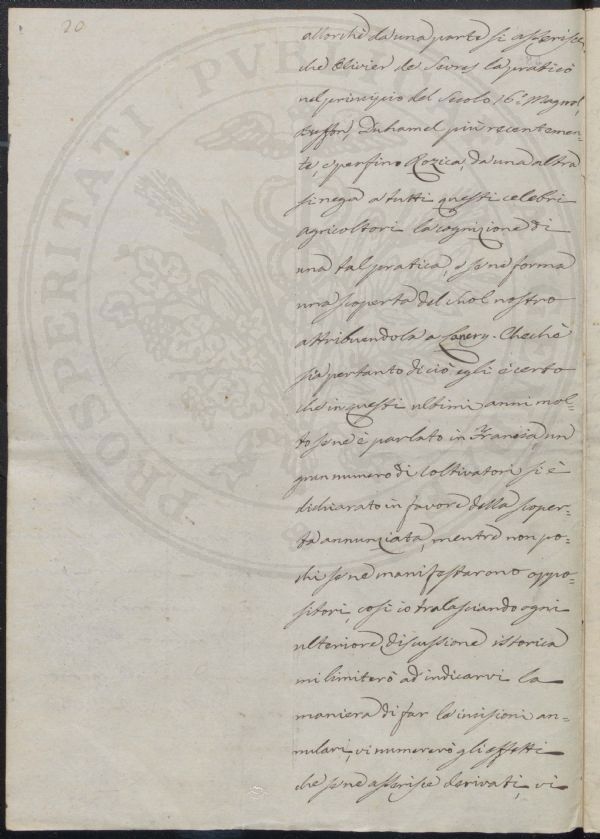 20
allorchè da una parte si asserisce
che Olivier de Serres la praticò
nel principio del Secolo 16.° Magnol,
Buffon, Duhamel più recentemen-
te, e perfino Rozier, da una altra
si nega a tutti questi celebri
agricoltori la cognizione di
una tal pratica, e se ne forma
una scoperta del suol nostro
attribuendola a Lancry. Chechè
sia pertanto di ciò, egli è certo
che in questi ultimi anni mol-
to se ne è parlato in Francia, un
gran numero di Coltivatori si è
dichiarato in favore della scoper-
ta annunziata, mentre non po-
chi se ne manifestarono oppo-
sitori, così io tralasciando ogni
ulteriore discussione istorica
mi limiterò ad indicarvi la
maniera di far la incisioni an-
nulari, vi numererò gli effetti
che se ne asserisce derivati, vi
PROSPERITATI PVBLICAE